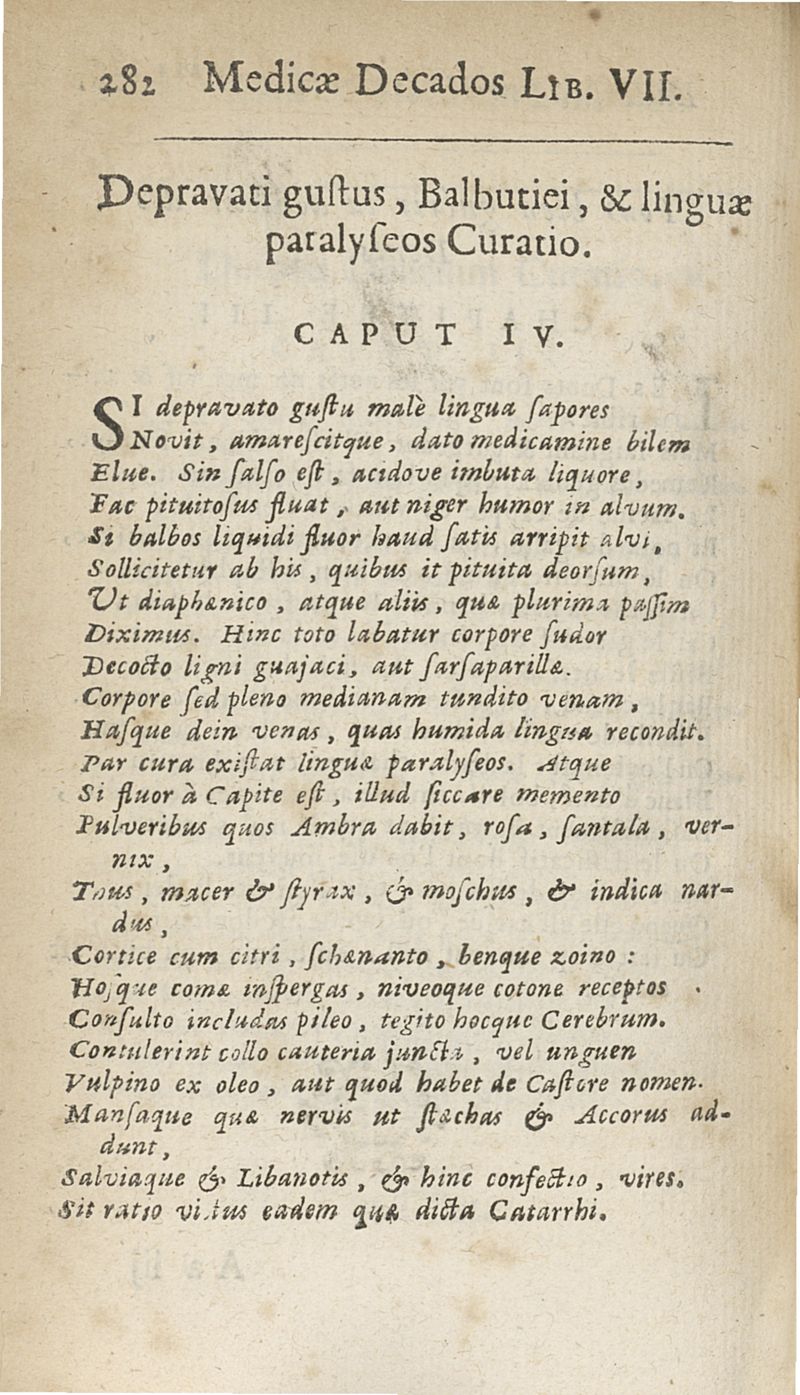 282 Medicæ Decados LIB. VII.
Depravati gustus, Balbutiei, & linguæ
paralyseos Curatio.
CAPUT IV.
SI depravato gustu malè lingua sapores
Novit, amarescitque, dato medicamine bilem
Elue. Sin salso est, acidove imbuta liquore,
Fac pituitosus fluat, aut niger humor in alvum.
Si balbos liquidi fluor haud satis arripit alvi,
Sollicitetur ab his, quibus it pituita deorsum,
Ut diaphænico, atque aliis, quæ plurima passim
Diximus. Hinc toto labatur corpore sudor
Decocto ligni guajaci, aut sarsaparillæ.
Corpore sed pleno medianam tundito venam,
Hasque dein venas, quas humida lingua recondit.
Par cura existat linguæ paralyseos. Atque
Si fluor à Capite est, illud siccare memento
Pulveribus quos Ambra dabit, rosa, santala, ver-
nix,
Tous, macer & styrax, & moschus, & indica nar-
dus,
Cortice cum citri, schænanto, benque zoino:
Hosque comæ inspergas, niveoque cotone receptos
Consulto includas pileo, tegito hocque Cerebrum.
Contulerint collo cauteria juncta, vel unguen
Vulpino ex oleo, aut quod habet de Castore nomen.
Mansaque quæ nervis ut stæchas & Accorus ad-
dunt,
Salviaque & Libanotis, & hinc confectio, vires.
Sit ratio victus eadem quæ dicta Catarrhi.